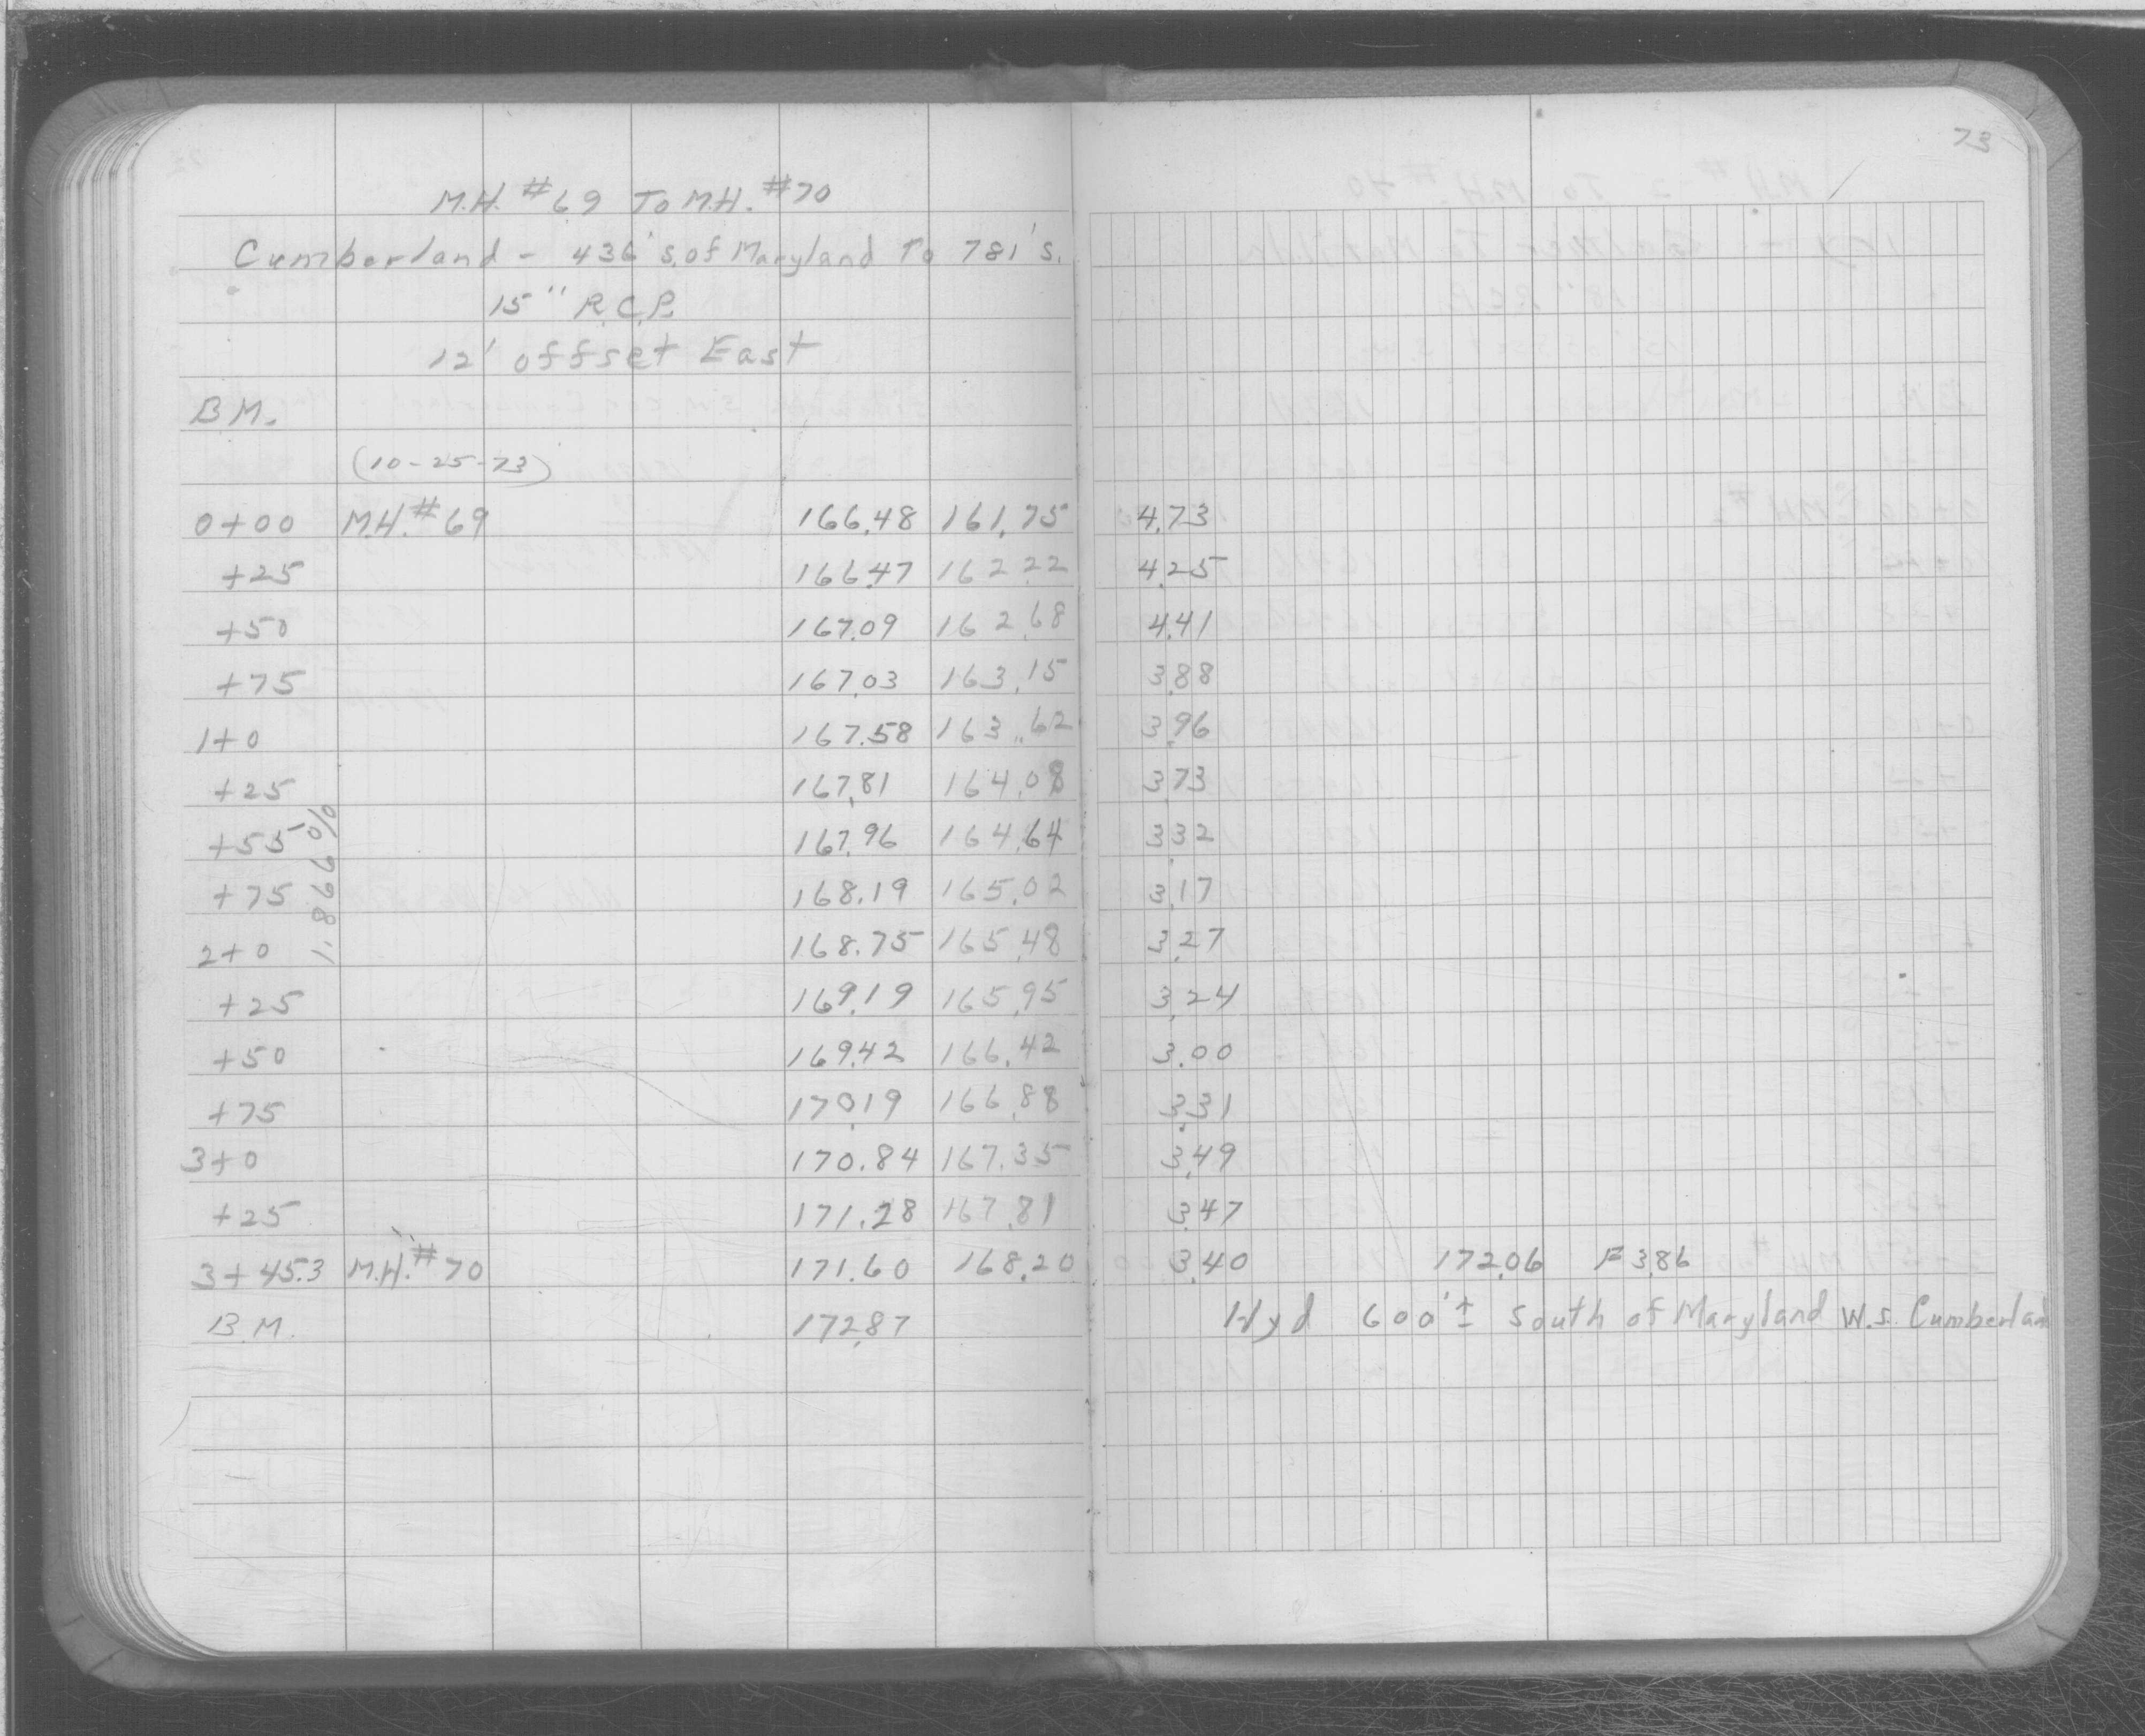 73
M.H. #69 To M.H. #70
Cumberland - 436' S. of Maryland To 781' S.
15" R.C.P.
12' offset East
B.M.
(10-25-73)
0+00 M.H. #69 166.48 161.75 4.73
+25 166.47 162.22 4.25
+50 167.09 162.68 4.41
+75 167.03 163.15 3.88
1+0 167.58 163.62 3.96
+25 167.81 164.08 3.73
+55 167.96 164.64 3.32
+75 168.19 165.02 3.17
2+0 168.75 165.48 3.27
+25 169.19 165.95 3.24
+50 169.42 166.42 3.00
+75 170.19 166.88 3.31
3+0 170.84 167.35 3.49
+25 171.28 167.81 3.47
3+45.3 M.H. #70 171.60 168.20 3.40 172.06 F 3.86
B.M. 172.87 Hyd 600'± South of Maryland W.S. Cumberlan
1.867%